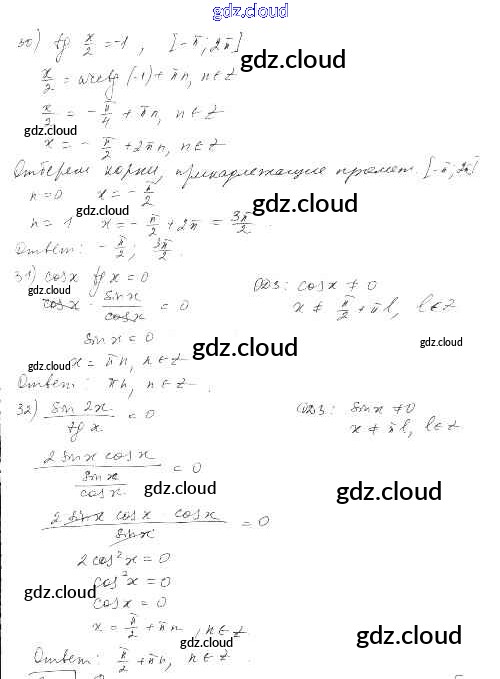 gdz.cloud
30) tg x/2 = -1, [-π; 2π]
gdz.cloud
x/2 = arctg (-1) + πn, n ∈ Z
x/2 = - π/4 + πn, n ∈ Z
gdz.cloud
x = - π/2 + 2πn, n ∈ Z
Отберем корни, принадлежащие промеж. [-π; 2π]
n = 0 x = - π/2
gdz.cloud
gdz.cloud
n = 1 x = - π/2 + 2π = 3π/2.
Ответ: - π/2; 3π/2.
31) cosx tg x = 0
ОДЗ: cosx ≠ 0
gdz.cloud
cosx · sinx/cosx = 0
x ≠ π/2 + πl, l ∈ Z
sinx = 0
gdz.cloud
gdz.cloud
gdz.cloud
x = πn, n ∈ Z
Ответ: πn, n ∈ Z.
32) sin 2x/tg x = 0
ОДЗ: sinx ≠ 0
x ≠ πl, l ∈ Z
gdz.cloud
2 sinx cosx/(sinx/cosx) = 0
gdz.cloud
gdz.cloud
2 sinx cosx · cosx/sinx = 0
2 cos²x = 0
cos²x = 0
gdz.cloud
cosx = 0
x = π/2 + πn, n ∈ Z
gdz.cloud
Ответ: π/2 + πn, n ∈ Z.